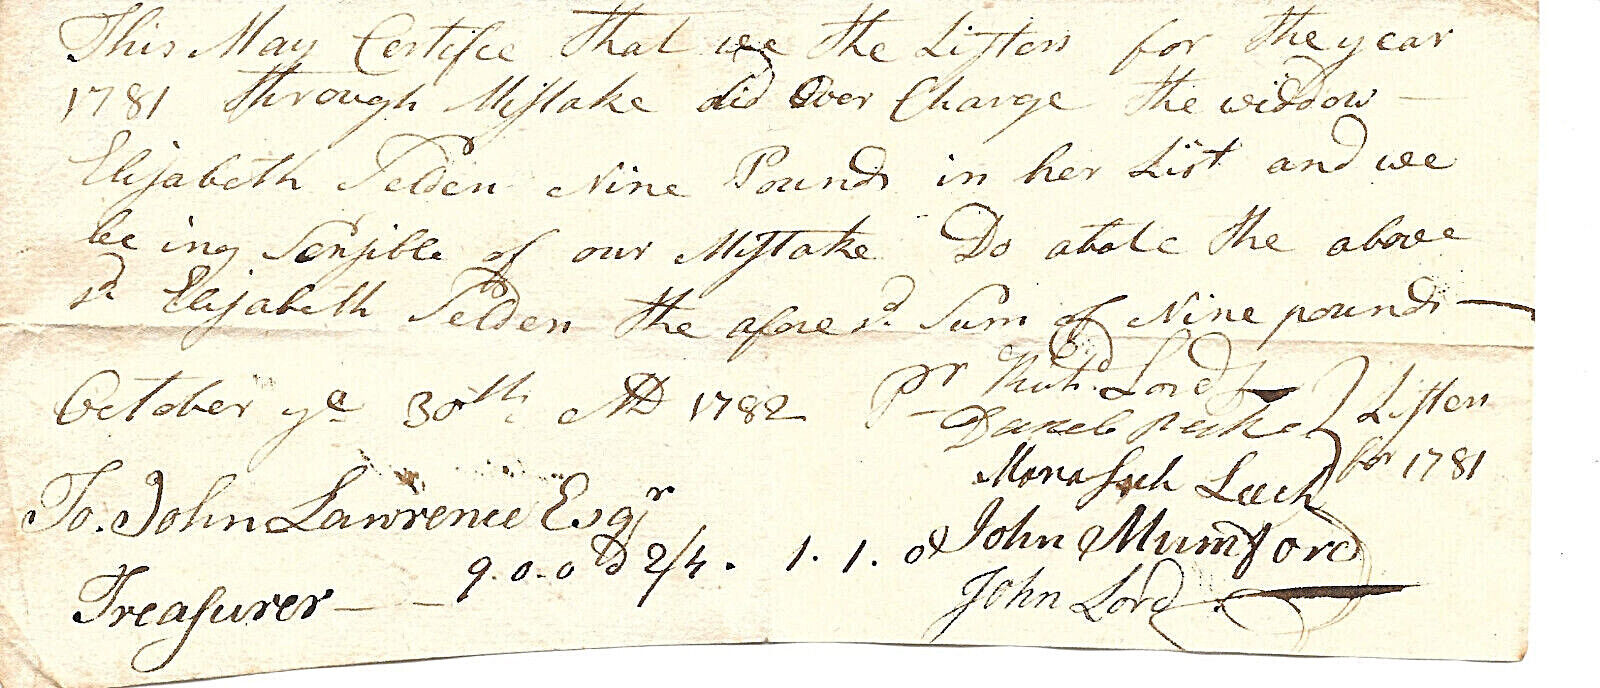 This May Certifie that we the Listers for the year
1781 through Mistake did Over Charge the widdow —
Elizabeth Selden Nine Pounds in her List and we
being Sensible of our Mistake Do abate the above
sd Elizabeth Selden the afore sd Sum of Nine pounds —
October ye 30th AD 1782 Pr Richd Lord Listers
Peck
for 1781
Manasseh Leech
To. John Lawrence Esqr
John Mumford
9.0.0 @ 2/4. 1.1.0
Treasurer —
John Lord